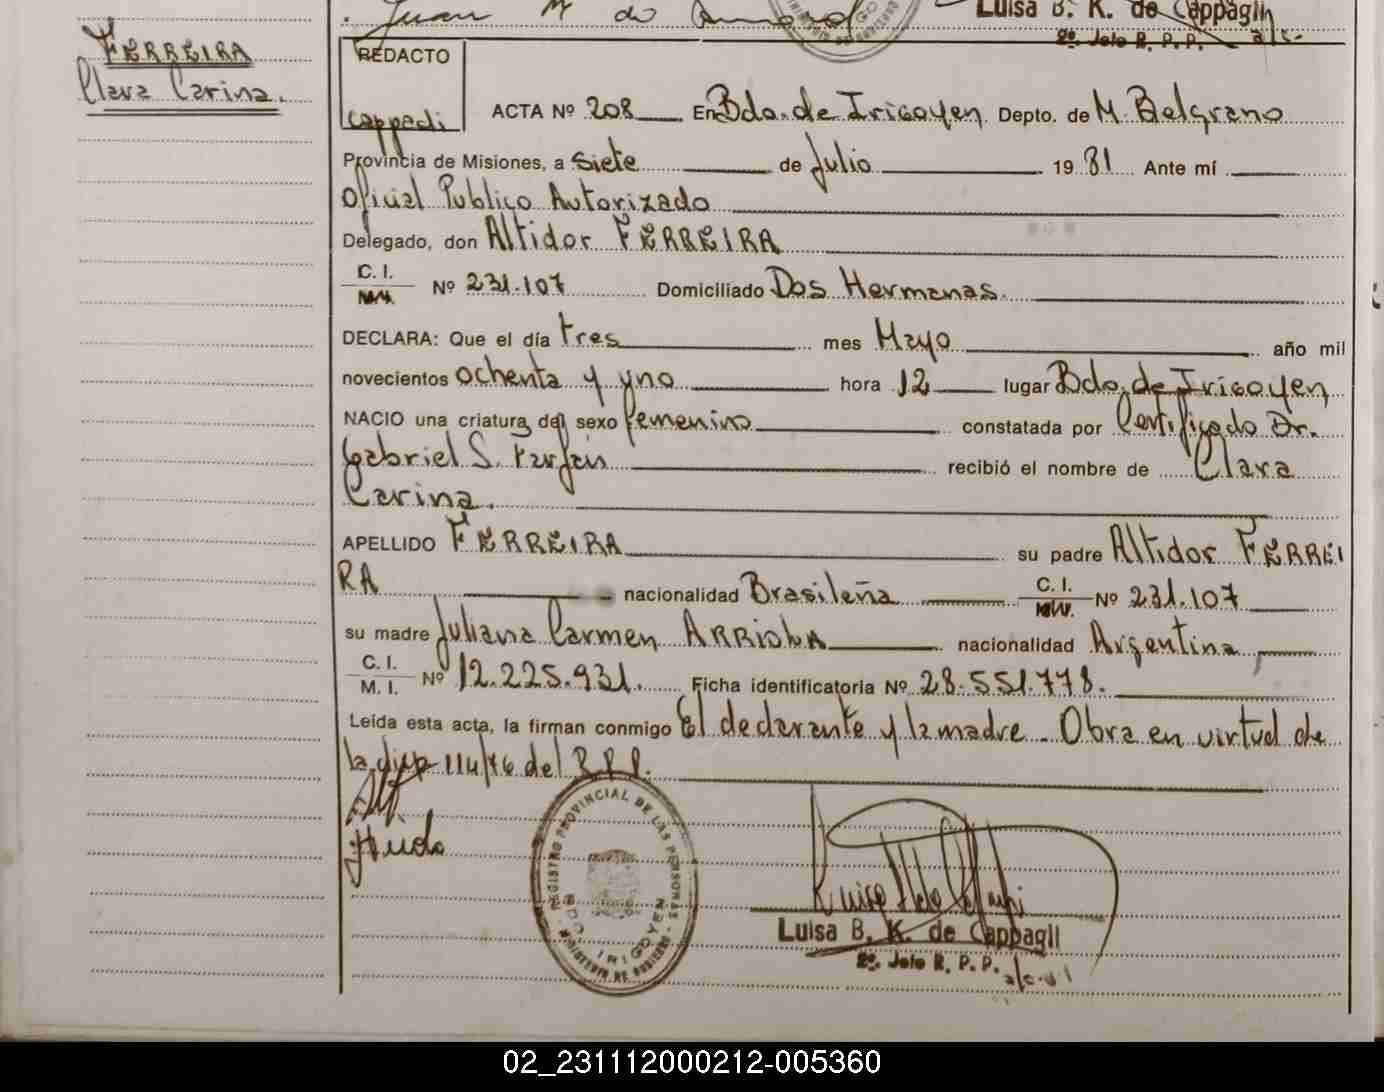 Juan M de
Luisa B. K. de Cappagli
2º. Jefe R. P. P.
FERREIRA
Clara Carina.
REDACTO
Cappedi
ACTA Nº 208 En Bdo. de Irigoyen Depto. de M. Belgrano
Provincia de Misiones, a Siete de Julio 19 81 Ante mí
Oficial Publico Autorizado
Delegado, don Altidor FERREIRA
C. I.
Nº 231.107 Domiciliado Dos Hermanas.
DECLARA: Que el día tres mes Mayo año mil
novecientos ochenta y uno hora 12 lugar Bdo. de Irigoyen
NACIO una criatura del sexo femenino constatada por Certificado Dr.
Gabriel S. Farfan recibió el nombre de Clara
Carina.
APELLIDO FERREIRA su padre Altidor FERREI
RA nacionalidad Brasileña C. I. Nº 231.107
su madre Juliana Carmen ARRIOLA nacionalidad Argentina,
C. I.
M. I. Nº 12.225.931. Ficha identificatoria Nº 28.551.778.
Leída esta acta, la firman conmigo El declarante y la madre. Obra en virtud de
la disp 114/76 del R.P.P.
REGISTRO PROVINCIAL DE LAS PERSONAS
BDO. IRIGOYEN
MINISTERIO DE GOBIERNO
Luisa B. K. de Cappagli
2º. Jefe R. P. P.
02_231112000212-005360